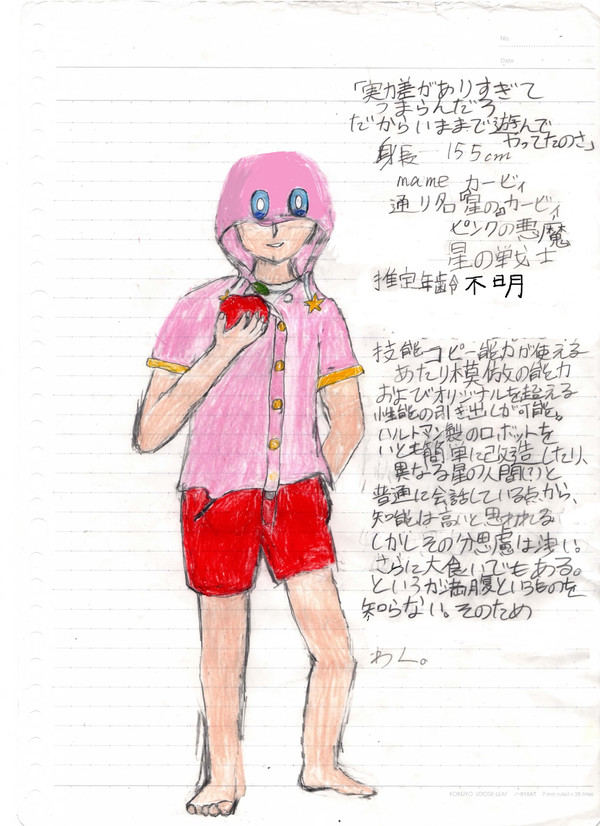 No.
Date
「実力差がありすぎて
つまらんだろ
だからいままで遊んで
やってたのさ」
身長 155cm
name カービィ
通り名 星のカービィ
ピンクの悪魔
星の戦士
推定年齢 不明
技能 コピー能力が使える
あたり模倣の能力
およびオリジナルを超える
性能の引き出しが可能。
ハルトマン製のロボットを
いとも簡単に改造したり、
異なる星の人間(?)と
普通に会話している点から、
知能は高いと思われる
しかしその分思慮は浅い。
さらに大食いでもある。
というか満腹というものを
知らない。そのため
わく。
KOKUYO LOOSE-LEAF